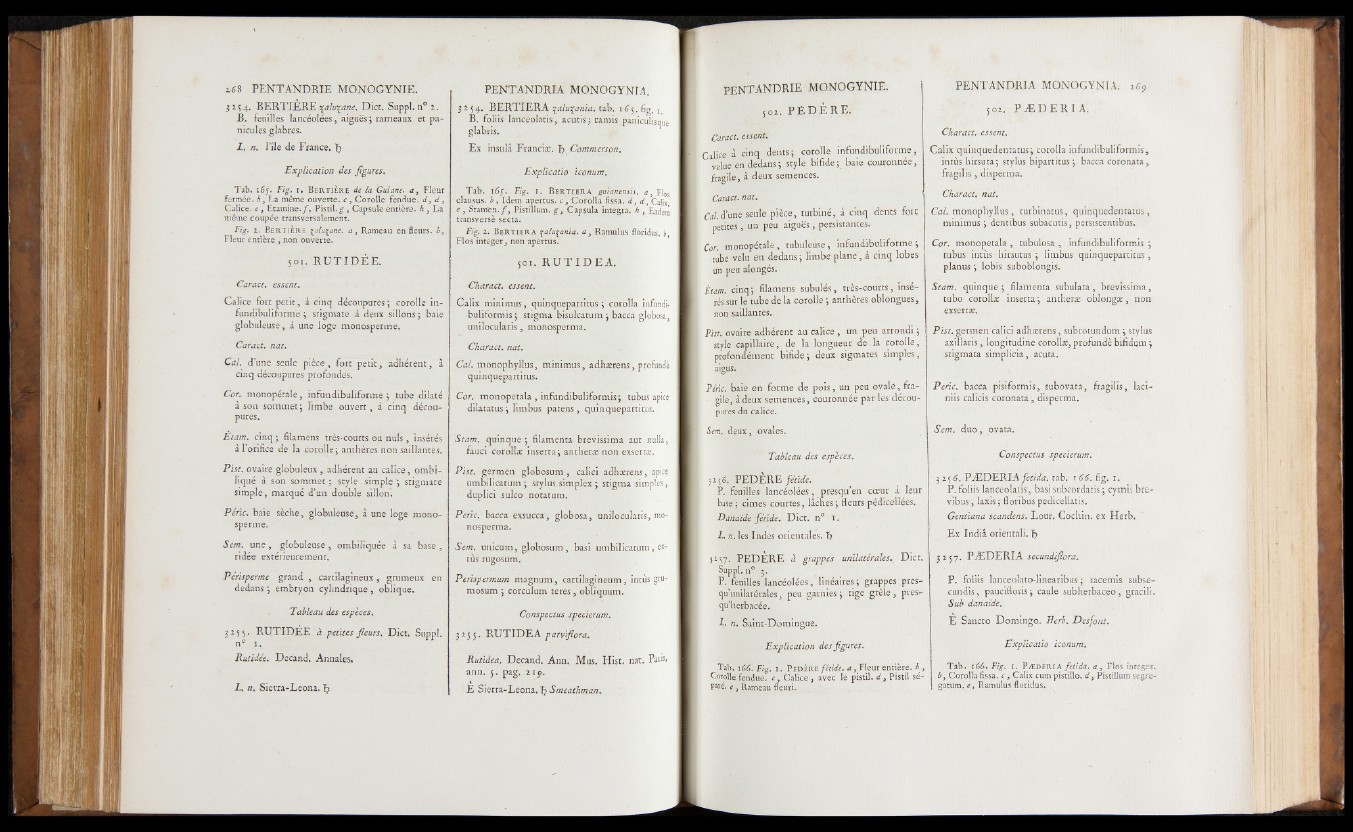 268 PENTANDRIE MONOGYNIE.
3254. BERTIÈRE zaluzane. Dict. Suppl. n° 2.
B. feuilles lancéolées, aiguës; rameaux et pa-
nicules glabres.
L. n. l'île de France. ♄
Explication des figures.
Tab. 165. Fig. 1. BERTIÈRE de la Guiane. a, Fleur
fermée. b, La même ouverte. c, Corolle fendue. d, d,
Calice. e, Etamine. f, Pistil. g, Capsule entière. h, La
même coupée transversalement.
Fig. 2. BERTIÈRE zaluzane. a, Rameau en fleurs. b,
Fleur entière, non ouverte.
501. RUTIDÉE.
Caract. essent.
Calice fort petit, à cinq découpures; corolle in-
fundibuliforme; stigmate à deux sillons; baie
globuleuse, à une loge monosperme.
Caract. nat.
Cal. d'une seule pièce, fort petit, adhérent, à
cinq découpures profondes.
Cor. monopétale, infundibuliforme; tube dilaté
à son sommet; limbe ouvert, à cinq décou-
pures.
Étam. cinq; filamens très-courts ou nuls, insérés
à l'orifice de la corolle; anthères non saillantes.
Pist. ovaire globuleux, adhérent au calice, ombi-
liqué à son sommet; style simple; stigmate
simple, marqué d'un double sillon.
Péric. baie sèche, globuleuse, à une loge mono-
sperme.
Sem. une, globuleuse, ombiliquée à sa base,
ridée extérieurement.
Périsperme grand, cartilagineux, grumeux en
dedans; embryon cylindrique, oblique.
Tableau des espèces.
3255. RUTIDÉE à petites fleurs. Dict. Suppl.
n° 1.
Rutidée. Decand. Annales.
L. n. Sierra-Leona. ♄
PENTANDRIA MONOGYNIA.
3254. BERTIERA zaluzania. tab. 165. fig. 1.
B. foliis lanceolatis, acutis; ramis paniculisque
glabris.
Ex insulâ Franciæ. ♄. Commerson.
Explicatio iconum.
Tab. 165. Fig. 1. BERTIERA guianensis. a, Flos
clausus. b, Idem apertus. c, Corolla fissa. d, d, Calix.
e, Stamen. f, Pistillum. g, Capsula integra. h, Eadem
transversè secta.
Fig. 2. BERTIERA zaluzania. a, Ramulus floridus. b,
Flos integer, non apertus.
501. RUTIDEA.
Charact. essent.
Calix minimus, quinquepartitus; corolla infundi-
buliformis; stigma bisulcatum; bacca globosa,
unilocularis, monosperma.
Charact. nat.
Cal. monophyllus, minimus, adhærens, profundè
quinquepartitus.
Cor. monopetala, infundibuliformis; tubus apice
dilatatus; limbus patens, quinquepartitus.
Stam. quinque; filamenta brevissima aut nulla,
fauci corollæ inserta; antheræ non exsertæ.
Pist. germen globosum, calici adhærens, apice
umbilicatum; stylus simplex; stigma simplex,
duplici sulco notatum.
Peric. bacca exsucca, globosa, unilocularis, mo-
nosperma.
Sem. unicum, globosum, basi umbilicatum, ex-
tùs rugosum.
Perispermum magnum, cartilagineum, intùs gru-
mosum; corculum teres, obliquum.
Conspectus specierum.
3255. RUTIDEA parviflora.
Rutidea. Decand. Ann. Mus. Hist. nat. Paris.
ann. 5. pag. 219.
È Sierra-Leona. ♄ Smeathman.
PENTANDRIE MONOGYNIE.
502. PÉDÈRE.
Caract. essent.
Calice à cinq dents; corolle infundibuliforme,
velue en dedans; style bifide; baie couronnée,
fragile, à deux semences.
Caract. nat.
Cal. d'une seule pièce, turbiné, à cinq dents fort
petites, un peu aiguës, persistantes.
Cor. monopétale, tubuleuse, infundibuliforme;
tube velu en dedans; limbe plane, à cinq lobes
un peu alongés.
Étam. cinq; filamens subulés, très-courts, insé-
rés sur le tube de la corolle; anthères oblongues,
non saillantes.
Pist. ovaire adhérent au calice, un peu arrondi;
style capillaire, de la longueur de la corolle,
profondément bifide; deux sigmates simples,
aigus.
Péric. baie en forme de pois, un peu ovale, fra-
gile, à deux semences, couronnée par les décou-
pures du calice.
Sem. deux, ovales.
Tableau des espèces.
3256. PEDÈRE fétide.
P. feuilles lancéolées, presqu'en cœur à leur
base; cimes courtes, lâches; fleurs pédicellées.
Danaïde fétide. Dict. n° 1.
L. n. les Indes orientales. ♄
3257. PEDÈRE à grappes unilatérales. Dict.
Suppl. n° 3.
P. feuilles lancéolées, linéaires; grappes pres-
qu'unilatérales, peu garnies; tige grêle, pres-
qu'herbacée.
L. n. Saint-Domingue.
Explication des figures.
Tab. 166. Fig. 1. PEDÈRE fétide. a, Fleur entière. b,
Corolle fendue. c, Calice, avec le pistil. d, Pistil sé-
paré. e, Rameau fleuri.
PENTANDRIA MONOGYNIA. 269
502. PÆDERIA.
Charact. essent.
Calix quinquedentatus; corolla infundibuliformis,
intùs hirsuta; stylus bipartitus; bacca coronata,
fragilis, disperma.
Charact. nat.
Cal. monophyllus, turbinatus, quinquedentatus,
minimus; dentibus subacutis, persistentibus.
Cor. monopetala, tubulosa, infundibuliformis;
tubus intùs hirsutus; limbus quinquepartitus,
planus; lobis suboblongis.
Stam. quinque; filamenta subulata, brevissima,
tubo corollæ inserta; antheræ oblongæ, non
exsertæ.
Pist. germen calici adhærens, subrotundum; stylus
axillaris, longitudine corollæ, profundè bifidum;
stigmata simplicia, acuta.
Peric. bacca pisiformis, subovata, fragilis, laci-
niis calicis coronata, disperma.
Sem. duo, ovata.
Conspectus specierum.
3256. PÆDERIA fetida. tab. 166. fig. 1.
P. foliis lanceolatis, basi subcordatis; cymis bre-
vibus, laxis; floribus pedicellatis.
Gentiana scandens. Lour. Cochin. ex Herb.
Ex Indiâ orientali. ♄
3257. PÆDERIA secundiflora.
P. foliis lanceolato-linearibus; racemis subse-
cundis, paucifloris; caule subherbaceo, gracili.
Sub danaide.
È Sancto Domingo. Herb. Desfont.
Explicatio iconum.
Tab. 166. Fig. 1. PÆDERIA fetida. a, Flos integer.
b, Corolla fissa. c, Calix cum pistillo. d, Pistillum segre-
gatum. e, Ramulus floridus.